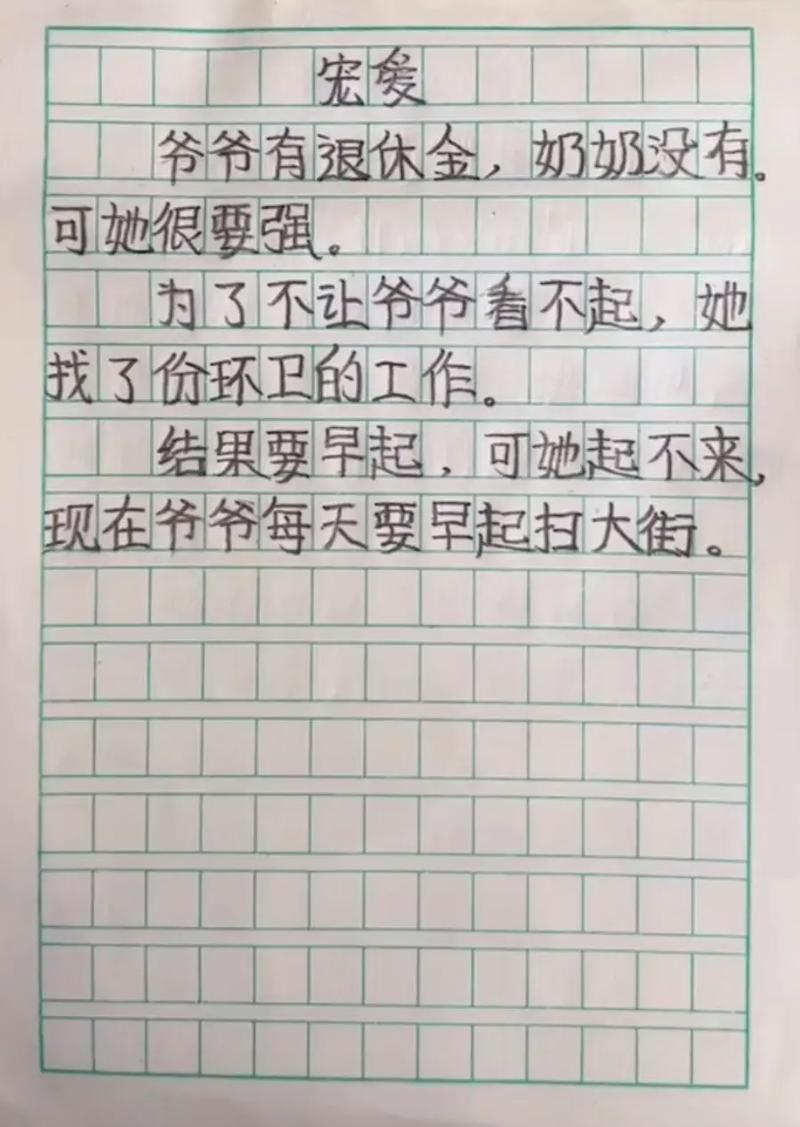 宠爱
爷爷有退休金，奶奶没有。
可她很要强。
为了不让爷爷看不起，她
找了份环卫的工作。
结果要早起，可她起不来，
现在爷爷每天要早起扫大街。